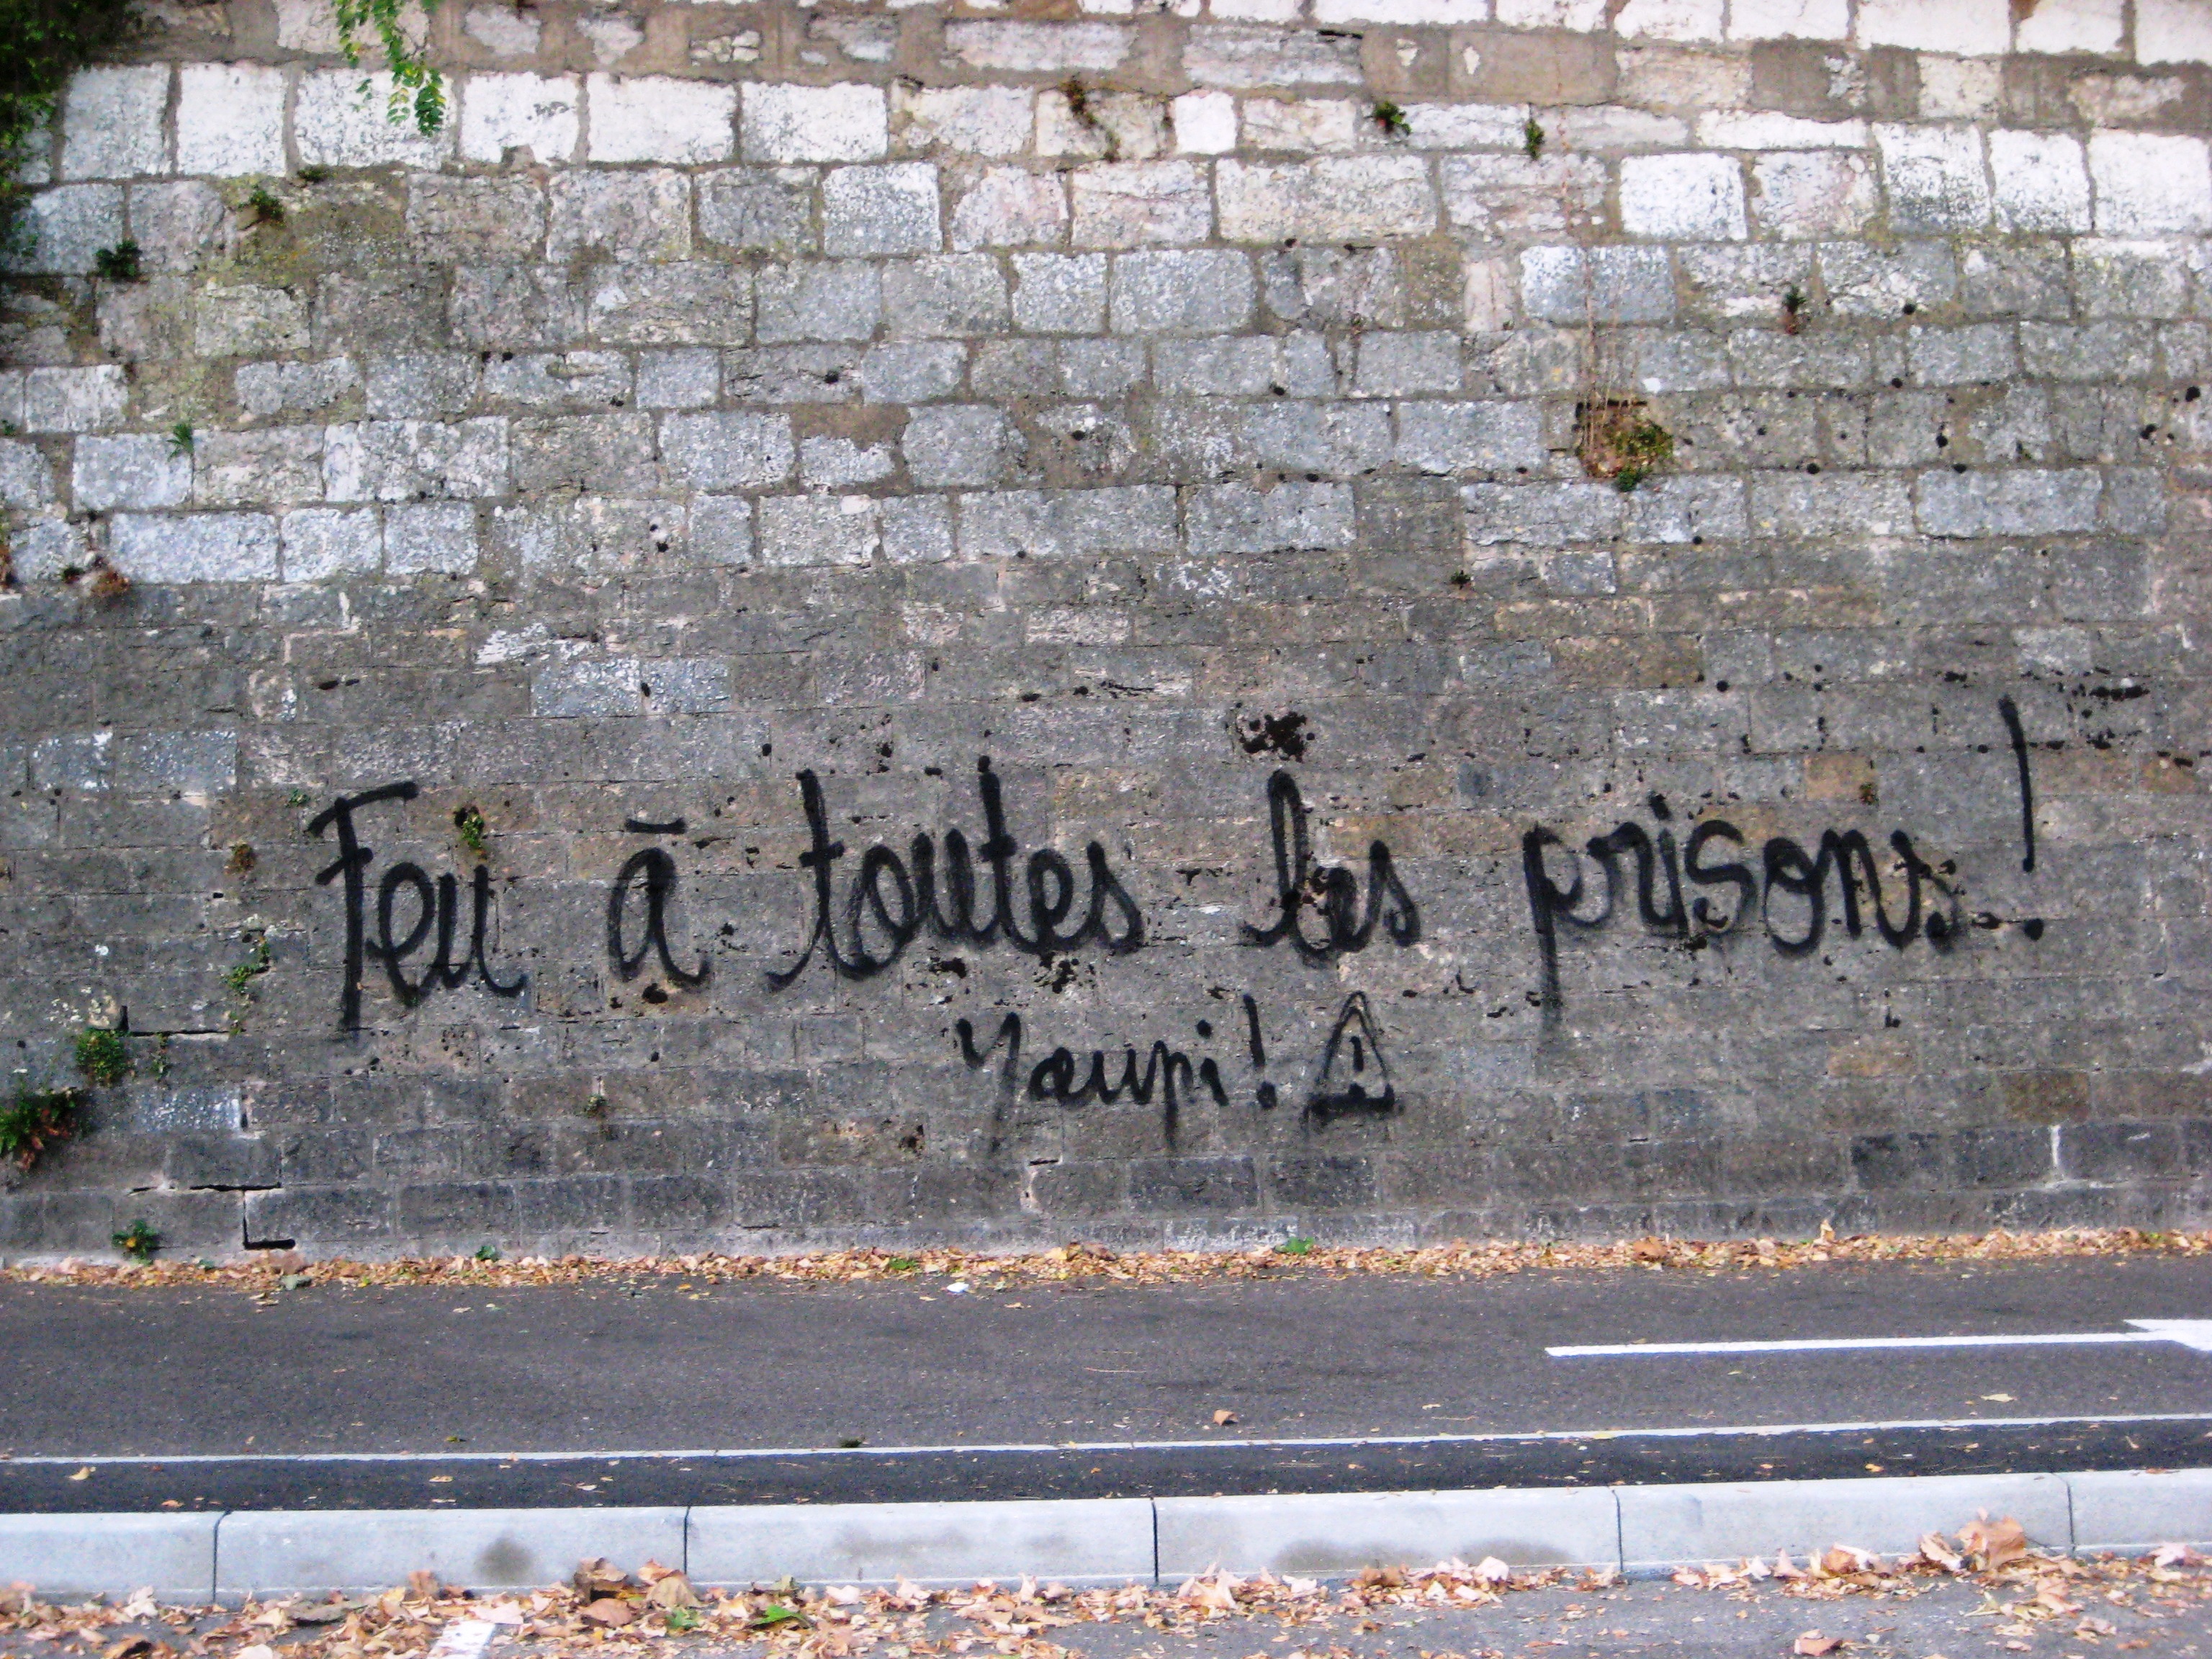 Feu à toutes les prisons !
Youpi ! ⚠